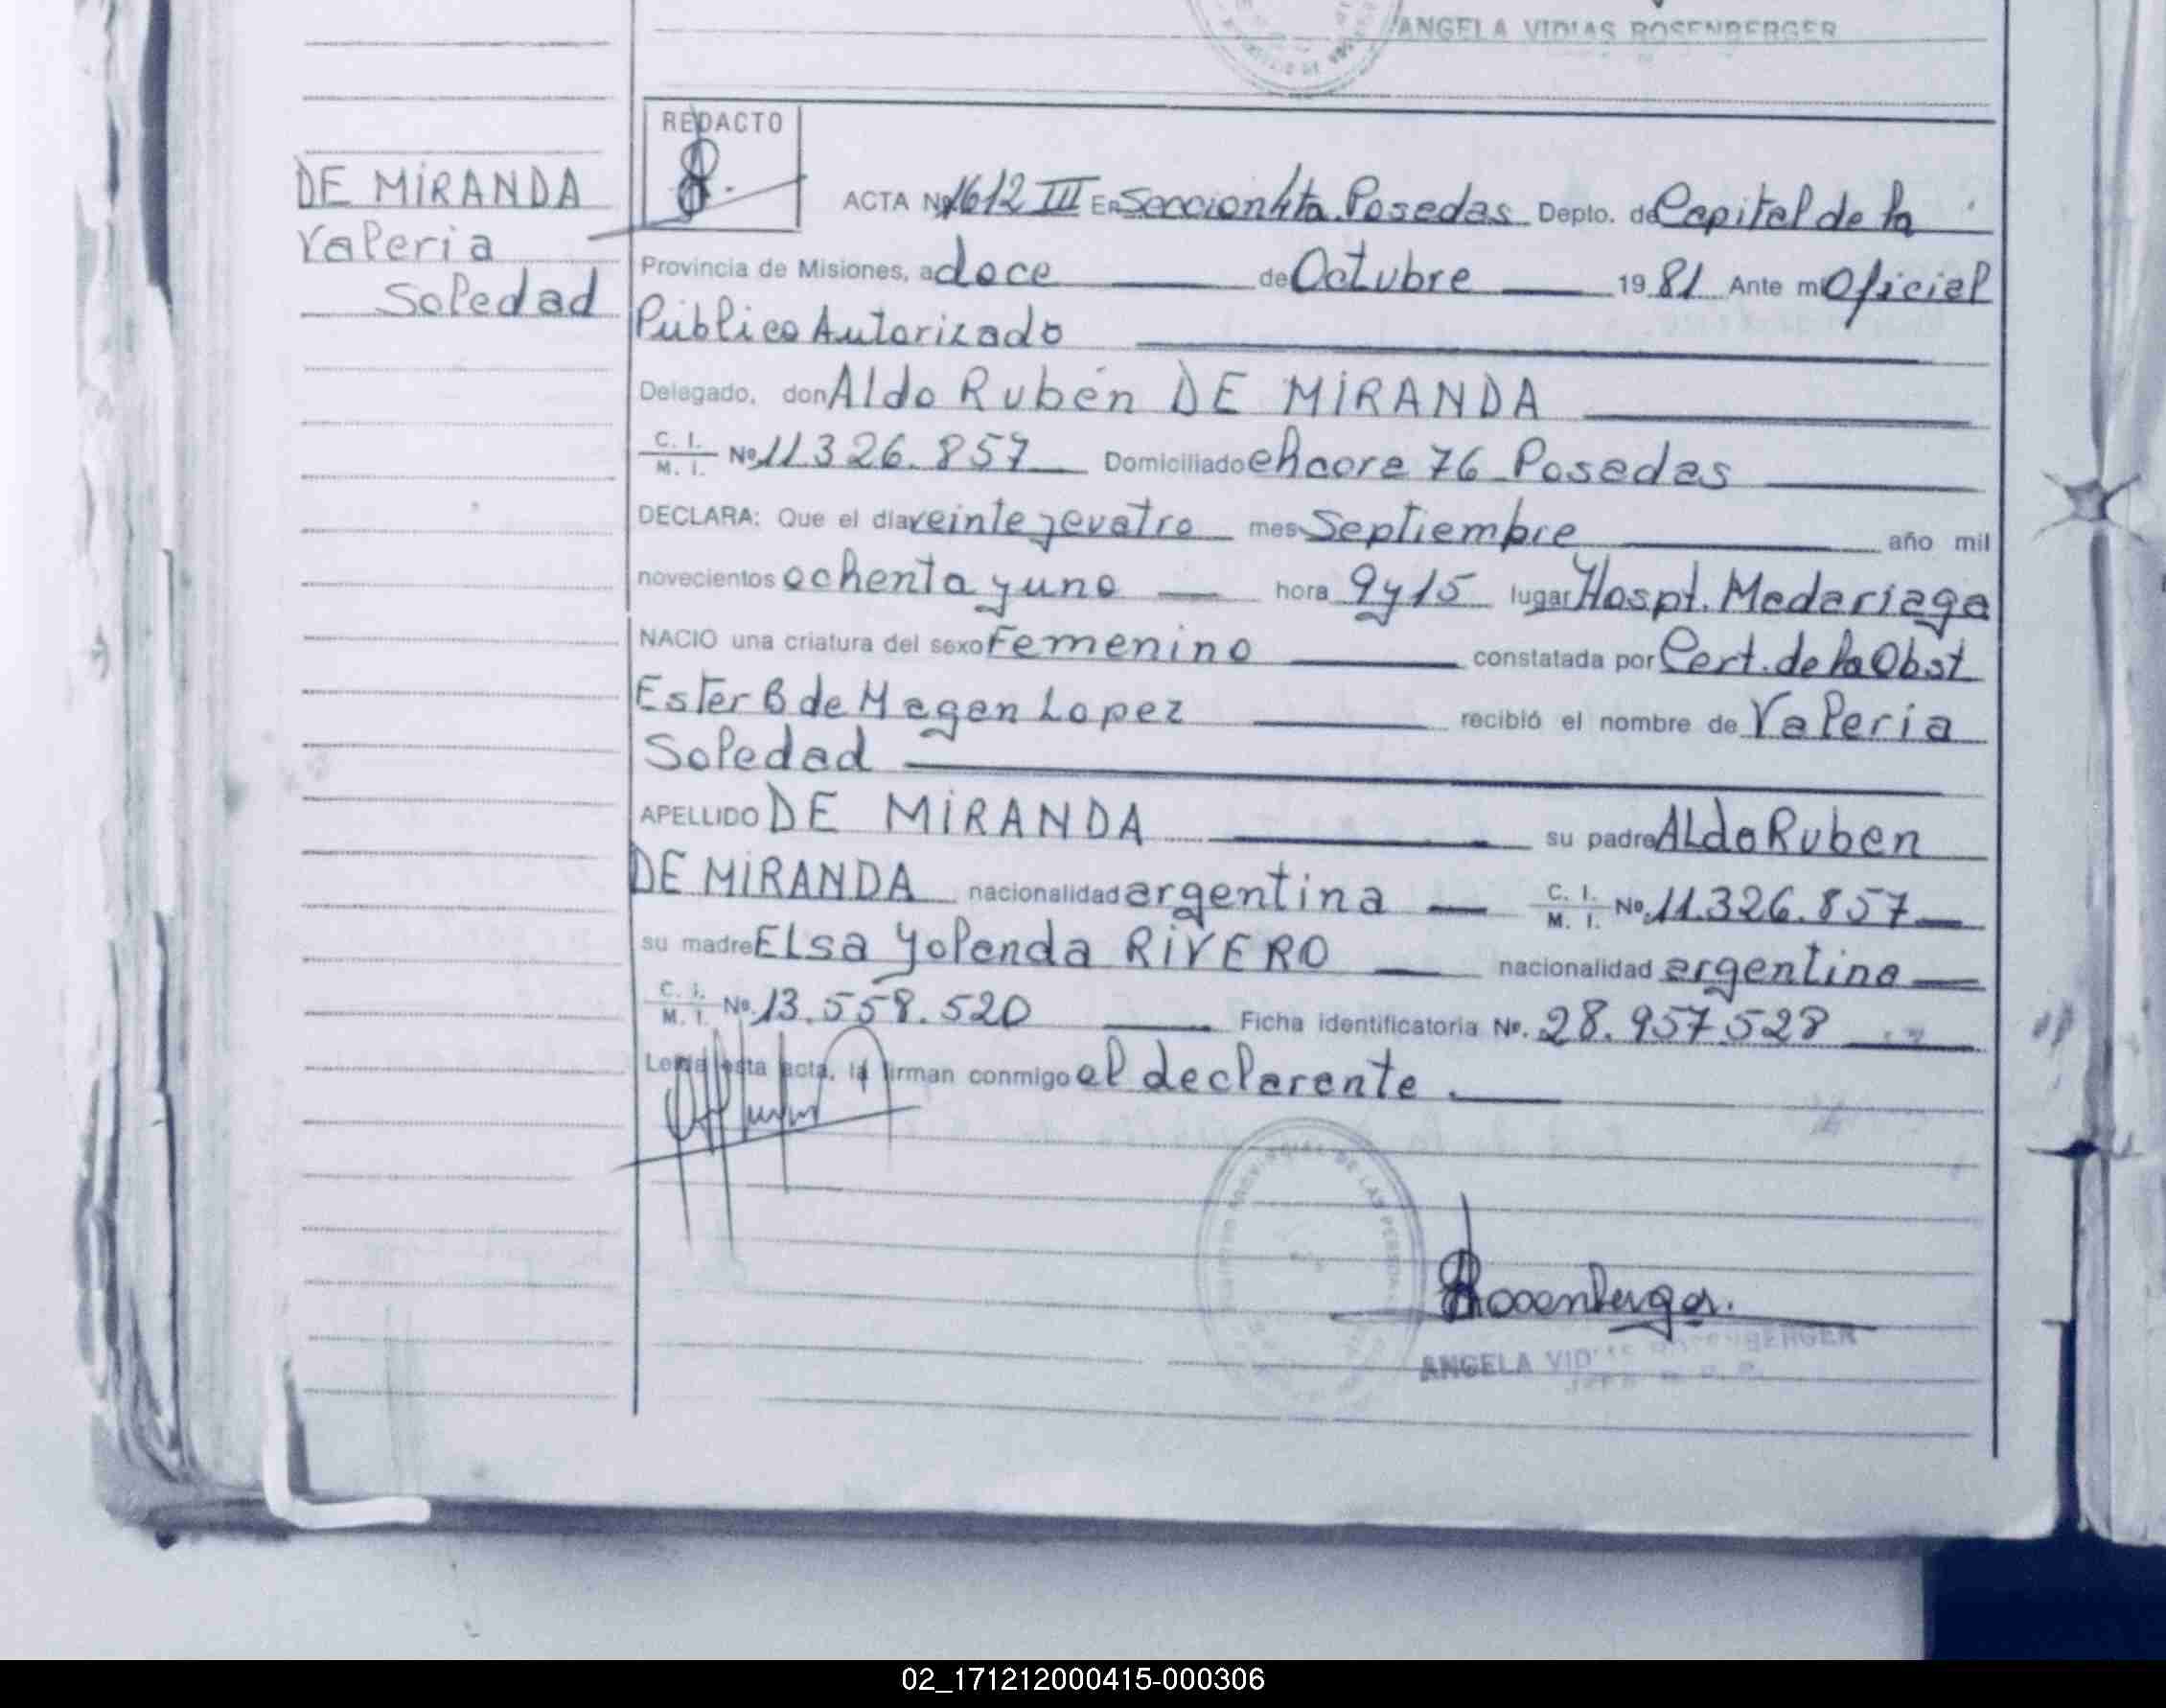 ANGELA VIDIAS ROSENBERGER
REDACTO
DE MIRANDA
Valeria
Soledad
ACTA Nº 1612 III En Seccion 4ta. Posadas Depto. de Capital de la
Provincia de Misiones, a doce de Octubre 1981 Ante mi Oficial
Público Autorizado
Delegado, don Aldo Rubén DE MIRANDA
C. I. / M. I. Nº 11.326.857 Domiciliado chacra 76 Posadas
DECLARA: Que el dia veinte y cuatro mes Septiembre año mil
novecientos ochenta y uno hora 9 y 15 lugar Hospt. Madariaga
NACIO una criatura del sexo Femenino constatada por Cert. de la Obst
Ester B de Magan Lopez recibió el nombre de Valeria
Soledad
APELLIDO DE MIRANDA su padre ALdo Ruben
DE MIRANDA nacionalidad argentina C. I. / M. I. Nº 11.326.857
su madre ELsa Yolanda RIVERO nacionalidad argentina
C. I. / M. I. Nº 13.558.520 Ficha identificatoria Nº. 28.957528
Leída esta acta, la firman conmigo el declarante.
Rosenberger.
ANGELA VIDIAS ROSENBERGER
02_171212000415-000306